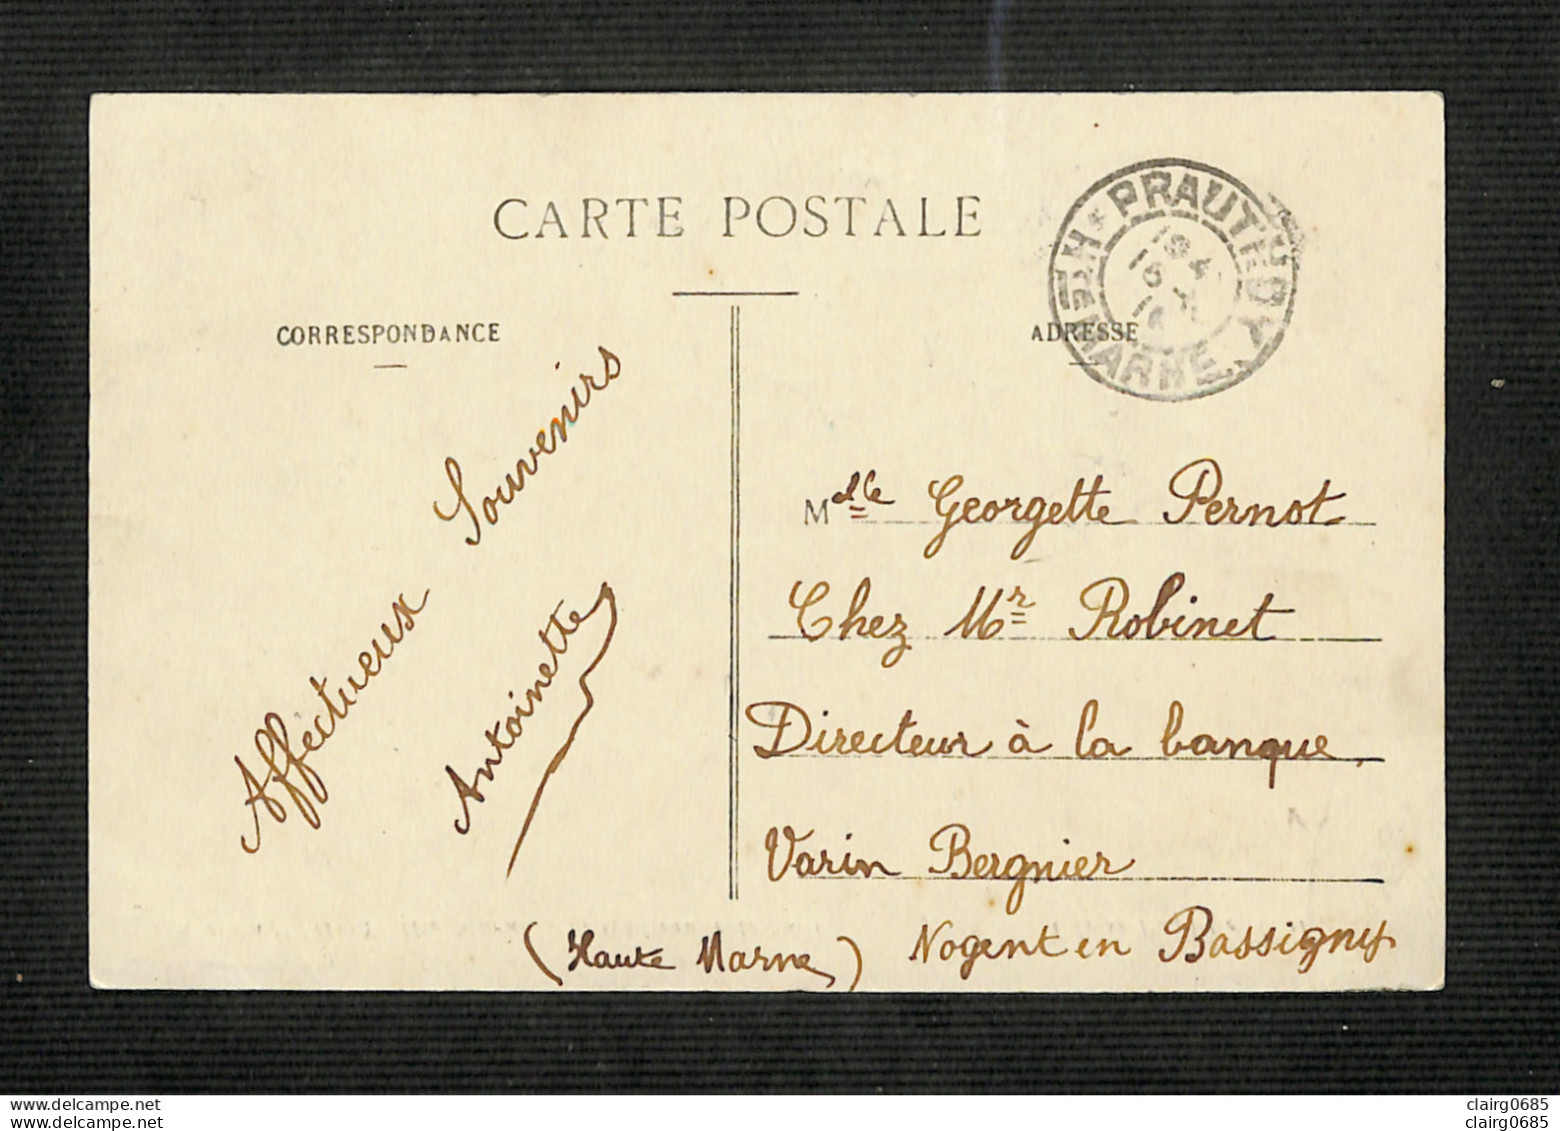 CARTE POSTALE
CORRESPONDANCE
ADRESSE
PRAUTHOY
Hte MARNE
Affectueux Souvenirs
Antoinette
Melle Georgette Pernot
Chez Mr Robinet
Directeur à la banque
Varin Bergnier
Nogent en Bassigny
(Haute Marne)
www.delcampe.net
clairg0685
www.delcampe.net
clairg0685